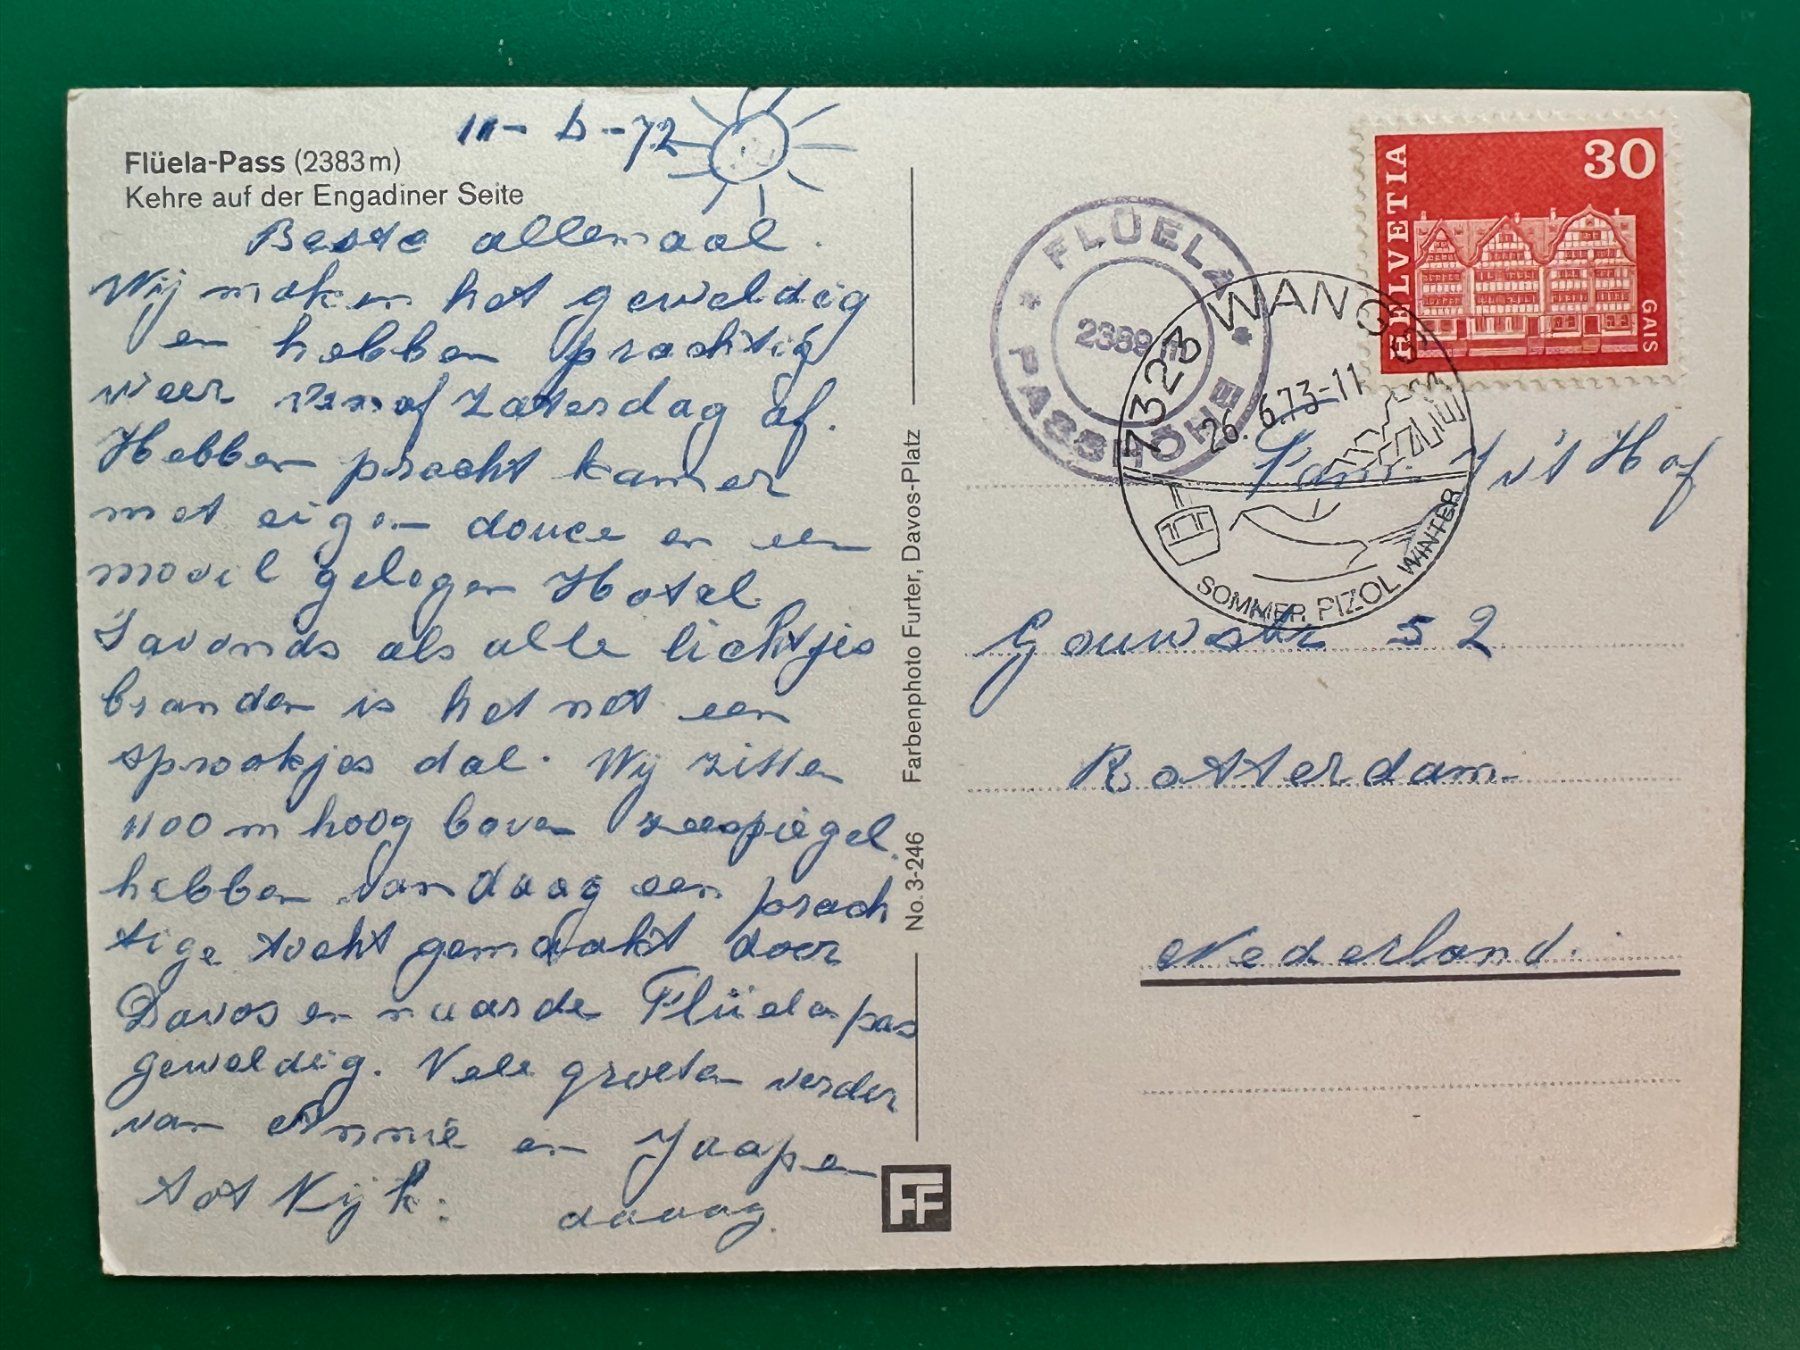 Flüela-Pass (2383 m)
Kehre auf der Engadiner Seite
-72
Beste allemaal.
Wij maken het geweldig
en hebben prachtig
weer vanaf zaterdag af.
Hebben pracht kamer
met eigen douce en een
mooil gelegen Hotel
S'avonds als alle lichtjes
branden is het net een
sprookjes dal. Wij zitten
1100 m hoog boven zeespiegel.
hebben vandaag een prach
tige tocht gemaakt door
Davos en naar de Flüela pas
geweldig. Vele groeten verder
van Annie en Jaap en
tot Kijk: daaag.
No. 3-246 Farbenphoto Furter, Davos-Platz
FF
HELVETIA
30
GAIS
* FLÜELA *
PASSHÖHE
2389 m
7323 WANGS
26.6.73-11
SOMMER PIZOL WINTER
Fam. v/'t Hof
Gouwstr 52
Rotterdam
Nederland.